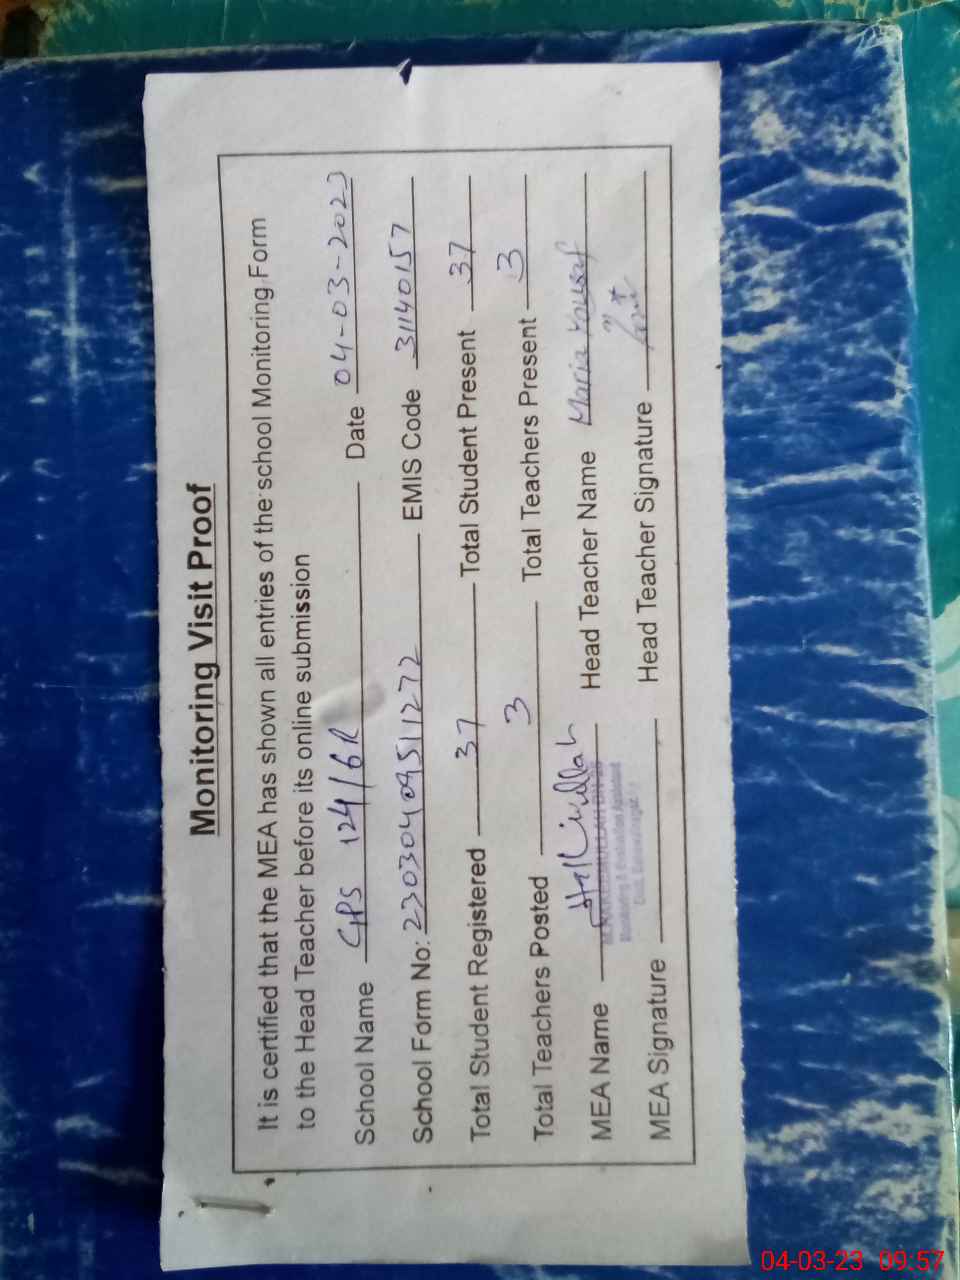 Monitoring Visit Proof
It is certified that the MEA has shown all entries of the school Monitoring Form
to the Head Teacher before its online submission
School Name GPS 124/6R Date 04-03-2023
School Form No: 23030409511272 EMIS Code 31140157
Total Student Registered 37 Total Student Present 37
Total Teachers Posted 3 Total Teachers Present 3
MEA Name Head Teacher Name Maria Yousaf
Monitoring & Evaluation Assistant
MEA Signature Head Teacher Signature
04-03-23 09:57